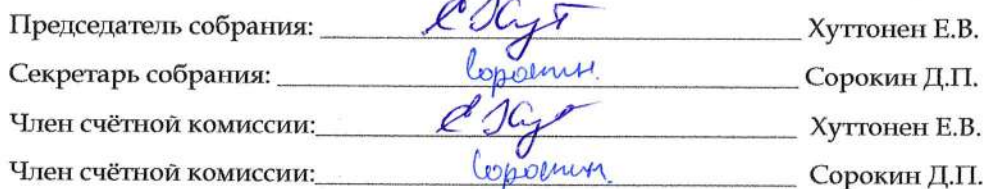 Председатель собрания: Е Хут Хуттонен Е.В.
Секретарь собрания: Сорокин. Сорокин Д.П.
Член счётной комиссии: Е Хут Хуттонен Е.В.
Член счётной комиссии: Сорокин. Сорокин Д.П.